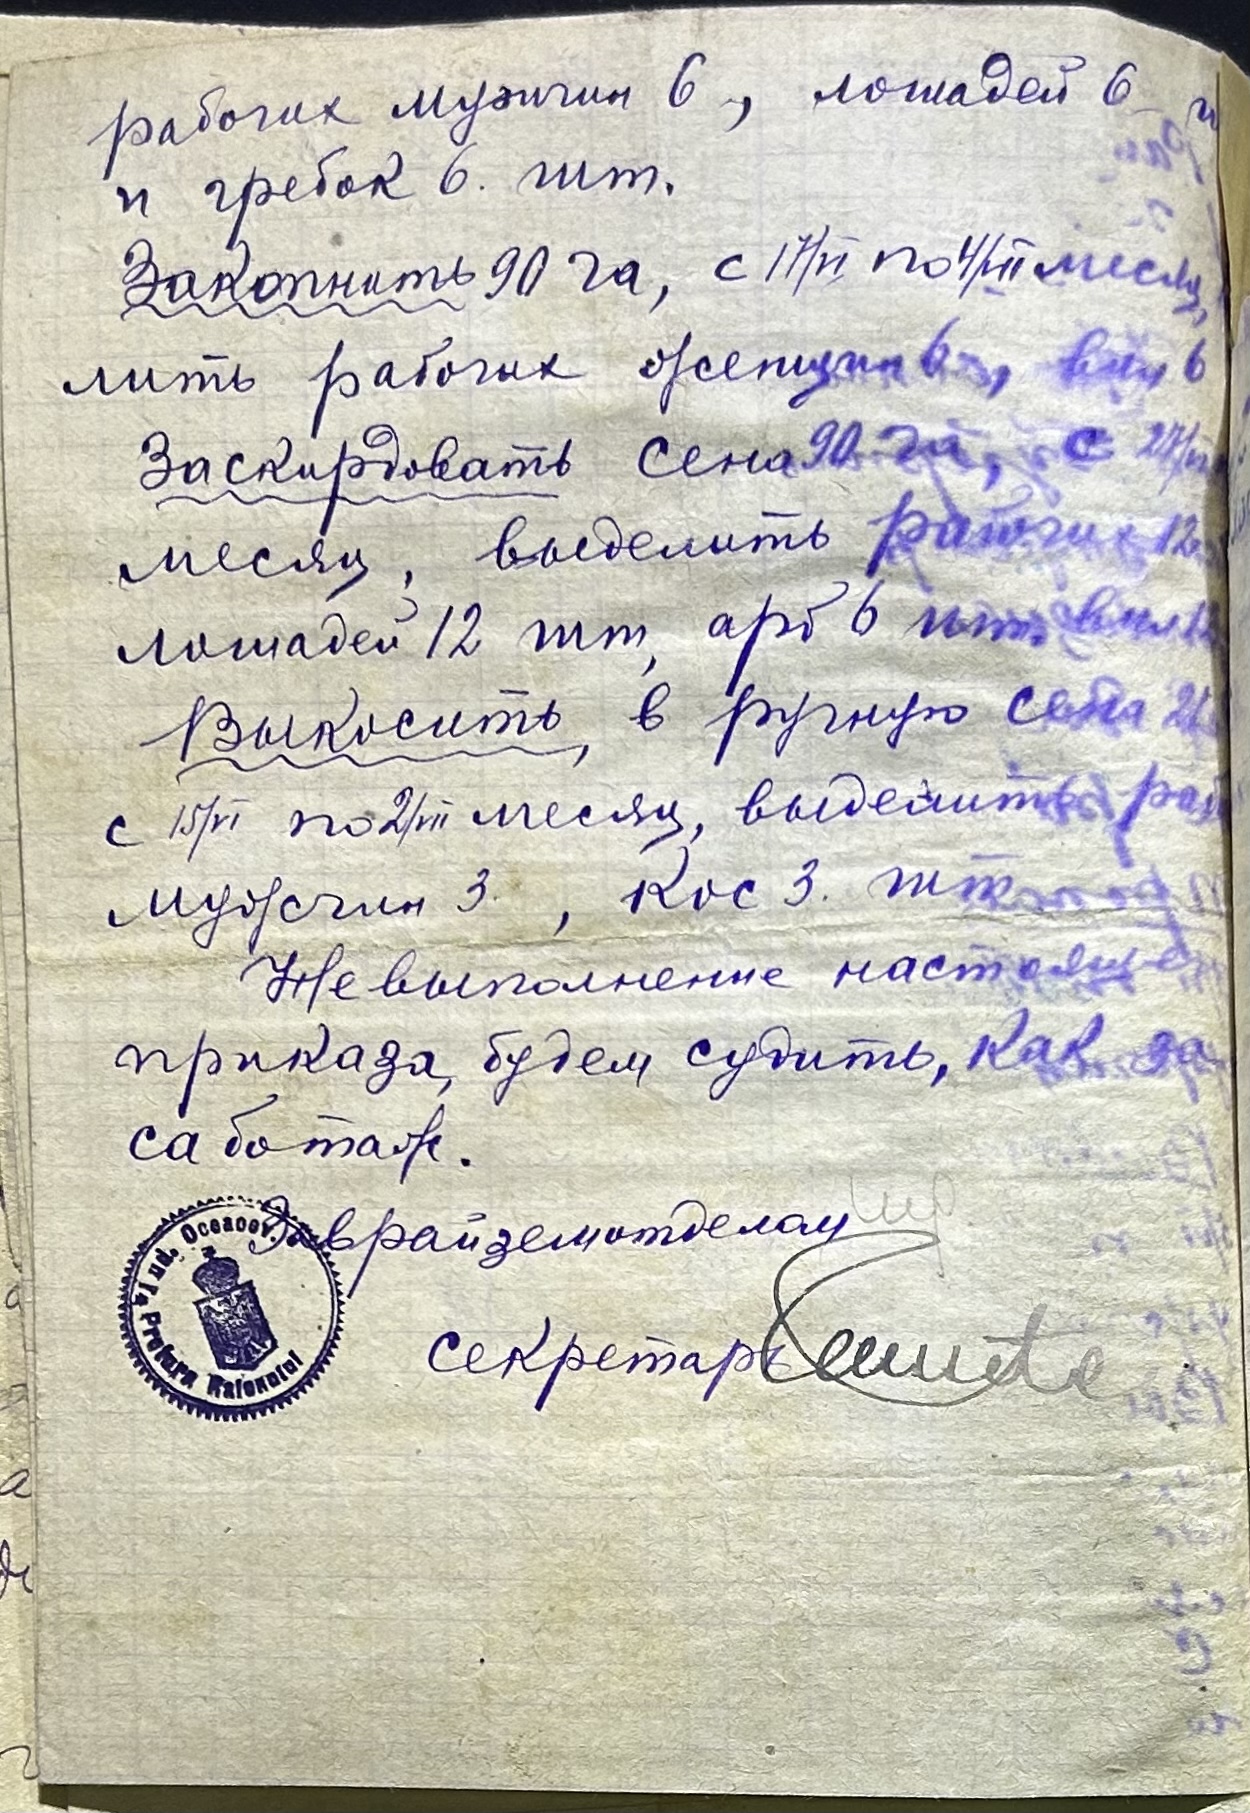 рабочих мужчин 6, лошадей 6
и гребок 6. шт.
Закопнить 90 га, с 17/VI по 4/VII месяц,
лить рабочих женщин 6, вил 6
Заскирдовать сена 90 га, с
месяц, выделить рабочих 12
лошадей 12 шт, арб 6 шт. вил 12
Выкосить, в ручную сена
с 15/VI по 2/VII месяц, выделить раб
мужчин 3. , Кос 3. шт
Невыполнение настояще
приказа, будем судить, как за
саботаж.
Заврайземотделом
секретарь
Jud. Oceacov.
Pretura Raionului